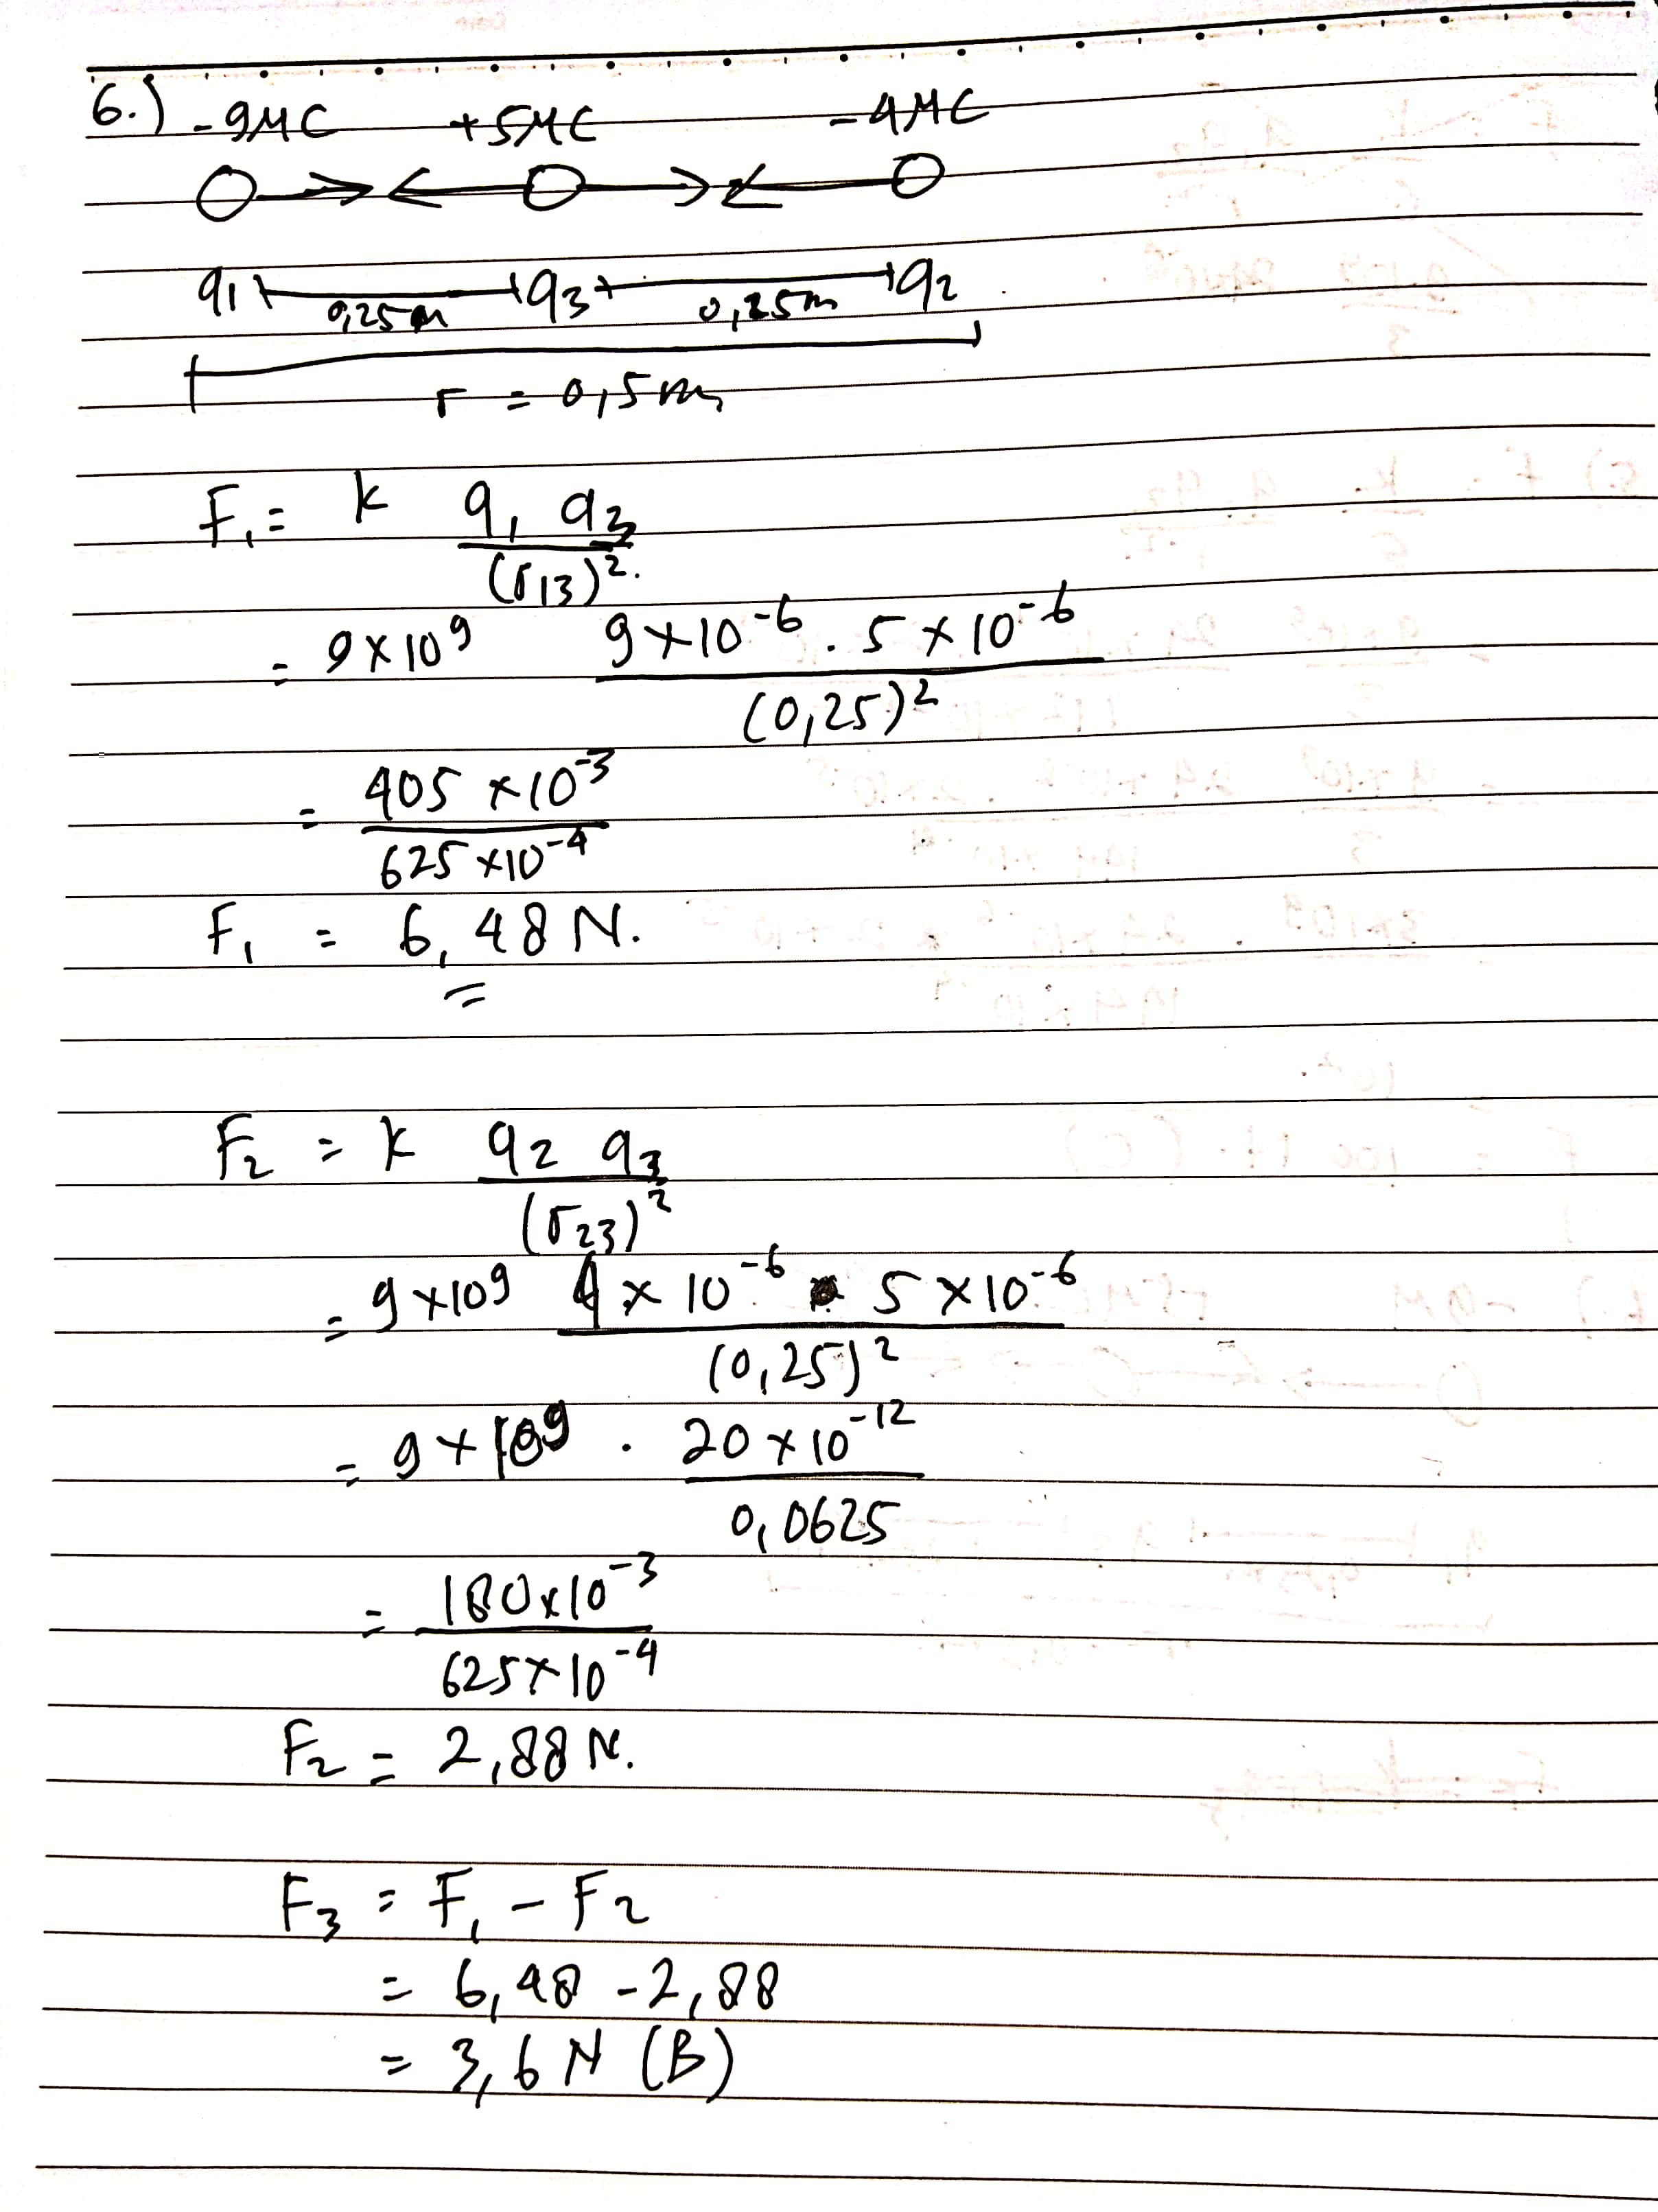 6.) -9µC +5µC -4µC
q1 q3 q2
0,25m 0,25m
r = 0,5m
F1 = k q1 q3
(r13)².
= 9×10⁹ 9×10⁻⁶ . 5×10⁻⁶
(0,25)²
= 405 ×10⁻³
625 ×10⁻⁴
F1 = 6,48 N.
=
F2 = k q2 q3
(r23)²
= 9×10⁹ 4×10⁻⁶ . 5×10⁻⁶
(0,25)²
= 9×10⁹ . 20×10⁻¹²
0,0625
= 180×10⁻³
625×10⁻⁴
F2 = 2,88 N.
F3 = F1 - F2
= 6,48 - 2,88
= 3,6 N (B)